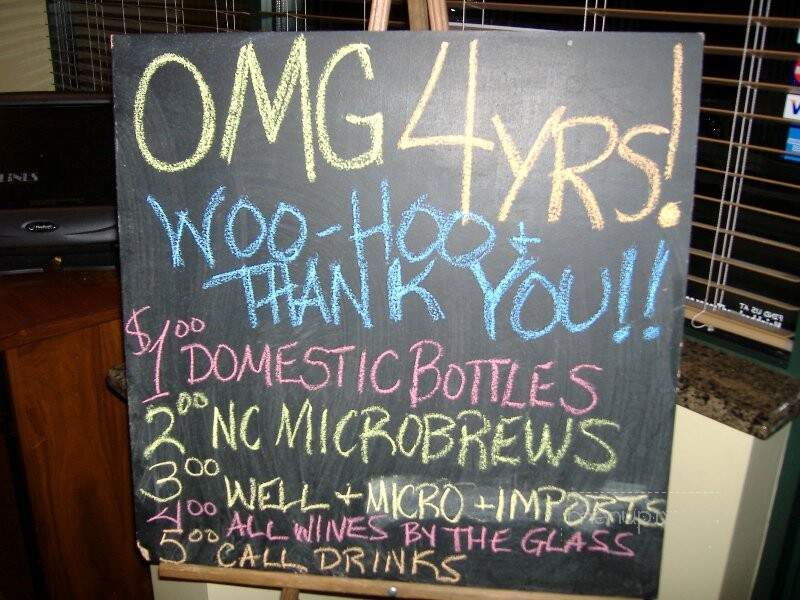 OMG 4YRS!
WOO-HOO +
THANK YOU!!
$1.00 DOMESTIC BOTTLES
2.00 NC MICROBREWS
3.00 WELL + MICRO + IMPORTS
4.00 ALL WINES BY THE GLASS
5.00 CALL DRINKS
FIND US AT